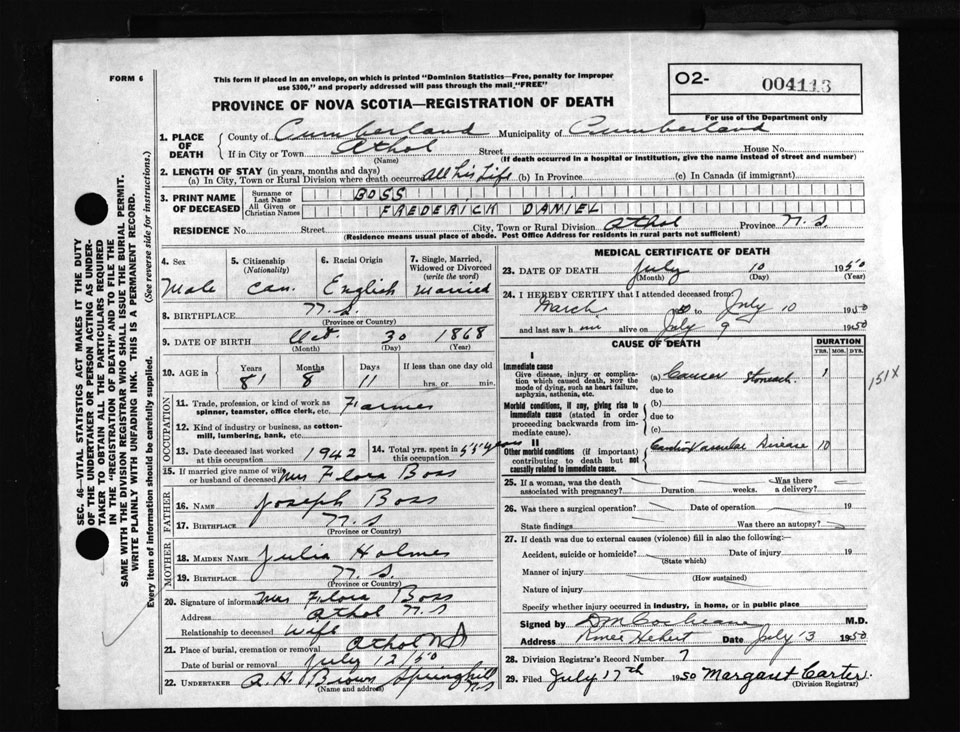 FORM 6
This form if placed in an envelope, on which is printed "Dominion Statistics—Free, penalty for improper
use $300," and properly addressed will pass through the mail "FREE"
O2- 004113
For use of the Department only
PROVINCE OF NOVA SCOTIA—REGISTRATION OF DEATH
1. PLACE OF DEATH
County of Cumberland Municipality of Cumberland
If in City or Town Athol Street House No.
(Name) (If death occurred in a hospital or institution, give the name instead of street and number)
2. LENGTH OF STAY (in years, months and days)
(a) In City, Town or Rural Division where death occurred All his Life (b) In Province (c) In Canada (if immigrant)
3. PRINT NAME OF DECEASED
Surname or Last Name BOSS
All Given or Christian Names FREDERICK DANIEL
RESIDENCE No. Street City, Town or Rural Division Athol Province N.S
(Residence means usual place of abode. Post Office Address for residents in rural parts not sufficient)
SEC. 46—VITAL STATISTICS ACT MAKES IT THE DUTY
OF THE UNDERTAKER OR PERSON ACTING AS UNDER-
TAKER TO OBTAIN ALL THE PARTICULARS REQUIRED
IN THE "REGISTRATION OF DEATH" AND TO FILE THE
SAME WITH THE DIVISION REGISTRAR WHO SHALL ISSUE THE BURIAL PERMIT.
WRITE PLAINLY WITH UNFADING INK. THIS IS A PERMANENT RECORD.
Every item of information should be carefully supplied. (See reverse side for instructions.)
4. Sex 5. Citizenship 6. Racial Origin 7. Single, Married,
(Nationality) Widowed or Divorced
(write the word)
Male Can. English Married
8. BIRTHPLACE N.S.
(Province or Country)
9. DATE OF BIRTH Oct. 30 1868
(Month) (Day) (Year)
10. AGE in Years Months Days If less than one day old
81 8 11 hrs. or min.
OCCUPATION
11. Trade, profession, or kind of work as
spinner, teamster, office clerk, etc. Farmer
12. Kind of industry or business, as cotton-
mill, lumbering, bank, etc.
13. Date deceased last worked
at this occupation 1942
14. Total yrs. spent in
this occupation 55 years
15. If married give name of wife
or husband of deceased Mrs Flora Boss
FATHER
16. NAME Joseph Boss
17. BIRTHPLACE N.S
(Province or Country)
MOTHER
18. MAIDEN NAME Julia Holmes
19. BIRTHPLACE N.S.
(Province or Country)
20. Signature of informant Mrs Flora Boss
Address Athol N.S
Relationship to deceased Wife
21. Place of burial, cremation or removal Athol N S
Date of burial or removal July 12/50
22. UNDERTAKER A. H. Brown Springhill N.S
(Name and address)
MEDICAL CERTIFICATE OF DEATH
23. DATE OF DEATH July 10 1950
(Month) (Day) (Year)
24. I HEREBY CERTIFY that I attended deceased from
March 1950 to July 10 1950
and last saw him alive on July 9 1950
CAUSE OF DEATH DURATION
YRS. MOS. DYS.
I
Immediate cause
Give disease, injury or complica-
tion which caused death, NOT the
mode of dying, such as heart failure,
asphyxia, asthenia, etc.
(a) Cancer Stomach 1
due to
151X
Morbid conditions, if any, giving rise to
immediate cause (stated in order
proceeding backwards from im-
mediate cause).
(b)
due to
(c)
II
Other morbid conditions (if important)
contributing to death but not
causally related to immediate cause.
Cardio Vascular Disease 10
25. If a woman, was the death
associated with pregnancy? Duration weeks. Was there
a delivery?
26. Was there a surgical operation? Date of operation 19
State findings Was there an autopsy?
27. If death was due to external causes (violence) fill in also the following:—
Accident, suicide or homicide? Date of injury 19
(State which)
Manner of injury
(How sustained)
Nature of injury
Specify whether injury occurred in industry, in home, or in public place
Signed by D M Cochrane M.D.
Address River Hebert Date July 13 1950
28. Division Registrar's Record Number 7
29. Filed July 17th 1950 Margaret Carter
(Division Registrar)